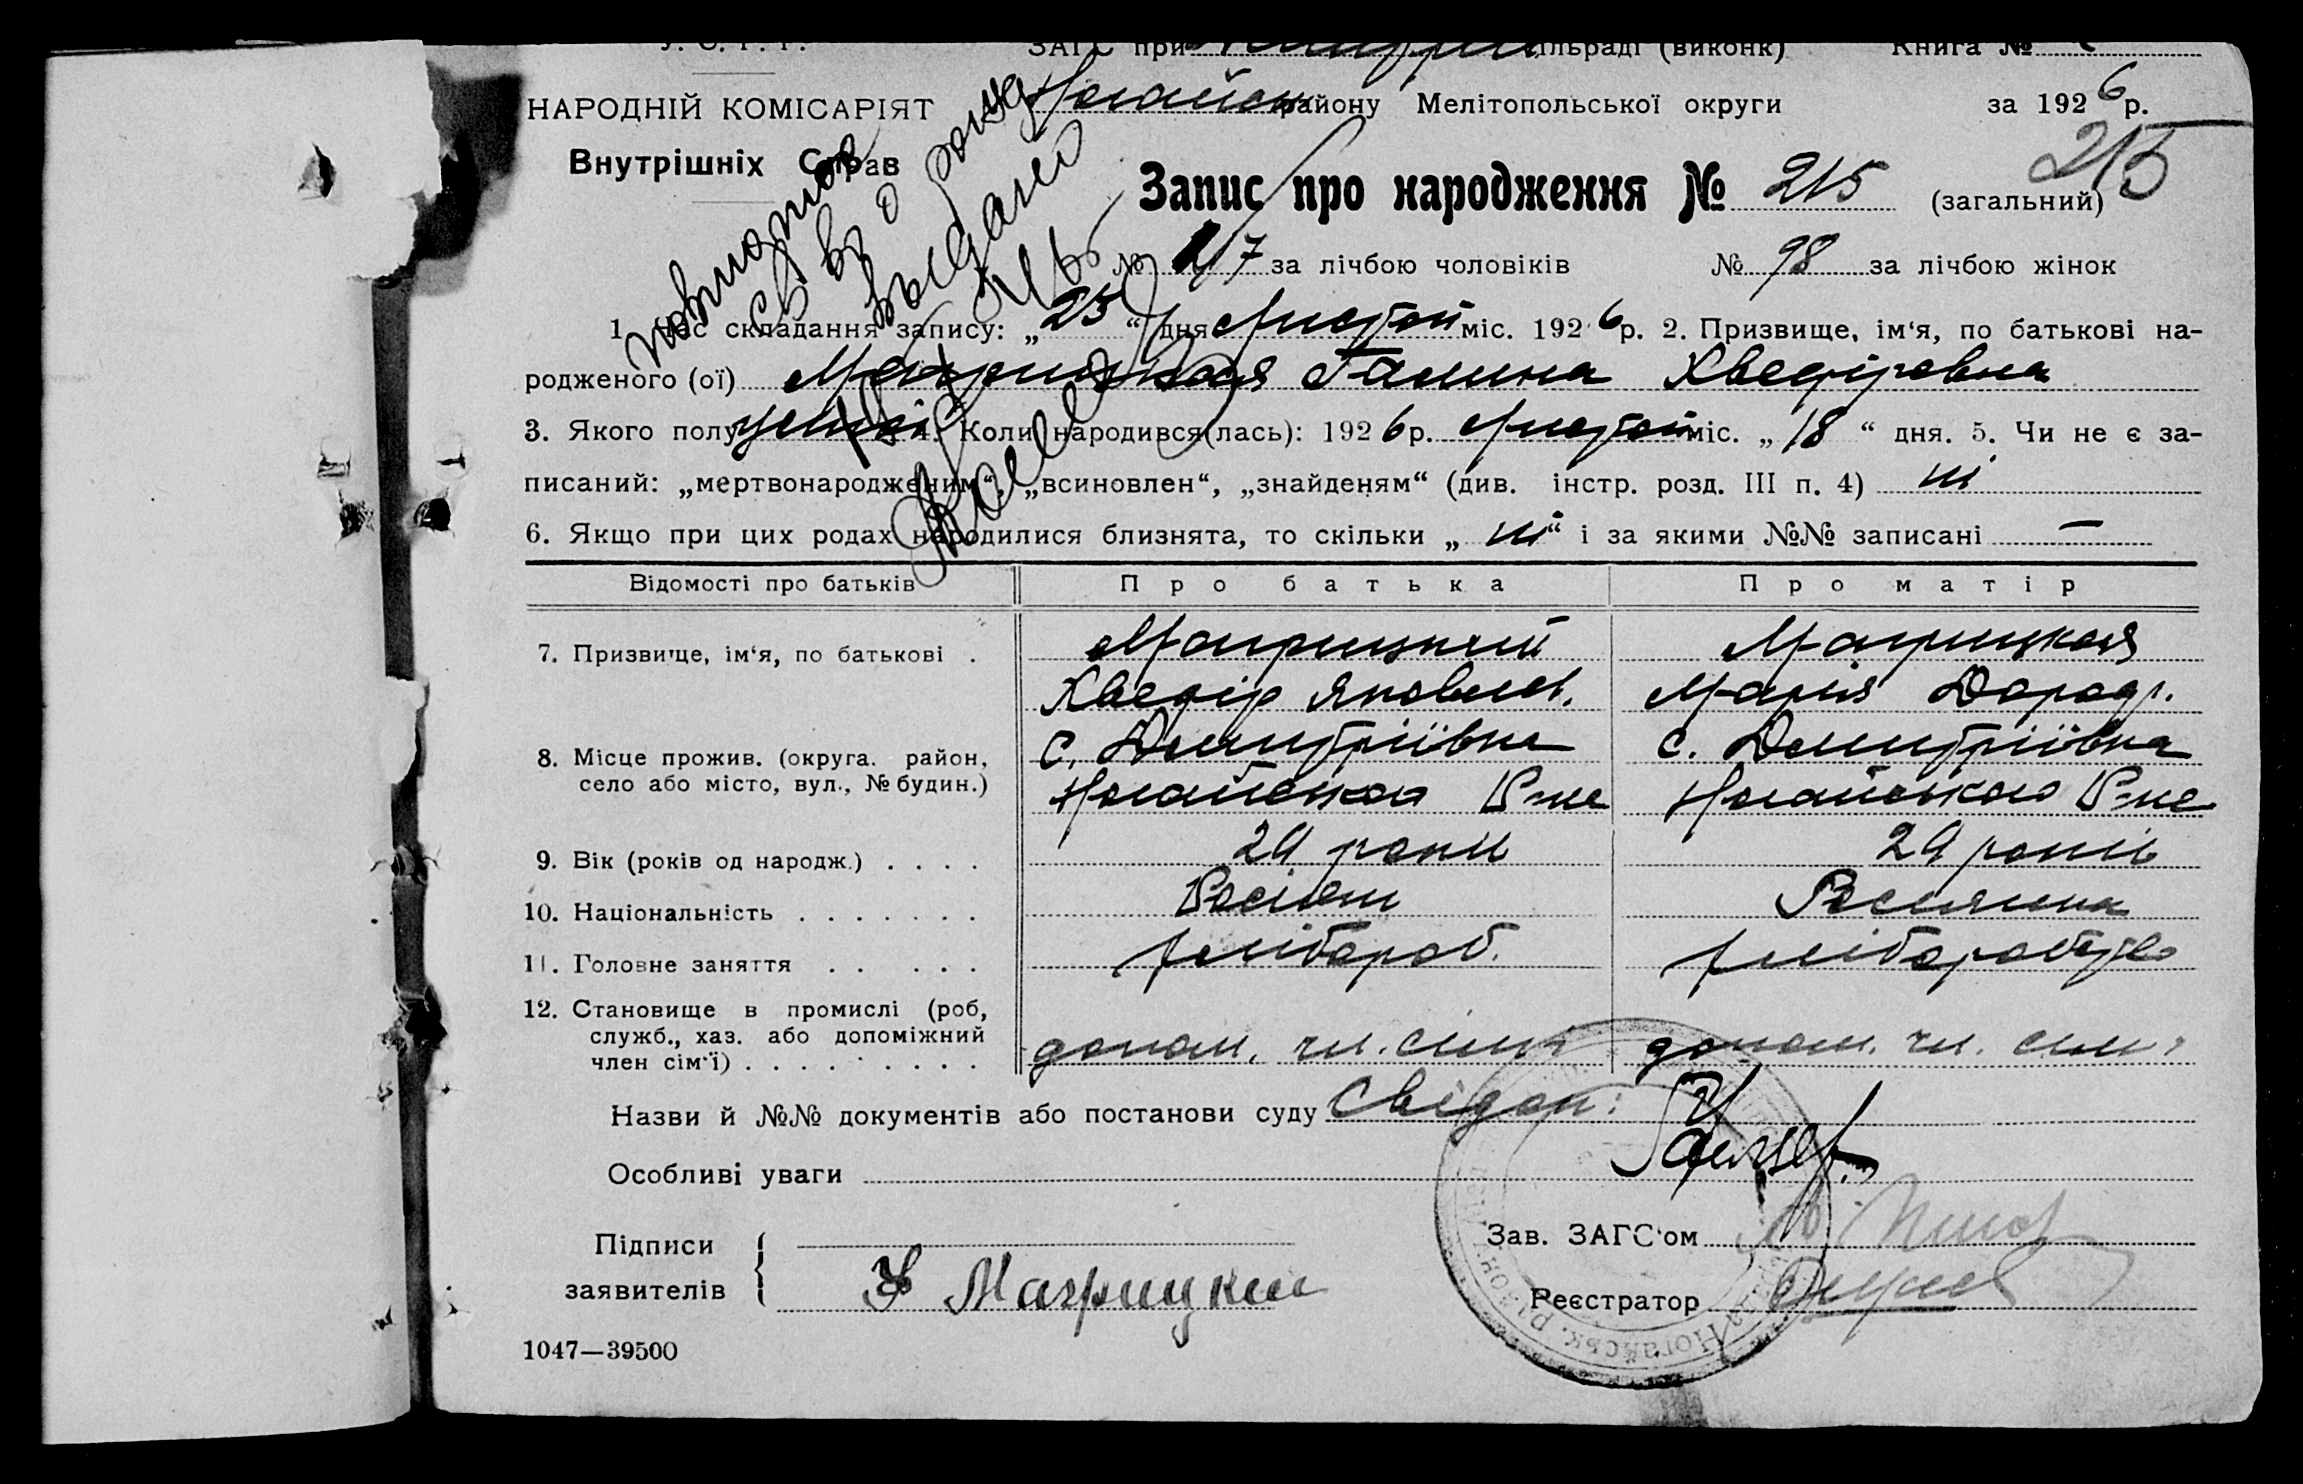 У. С. Р. Р.
ЗАГС при сільраді (виконк) Книга №
НАРОДНІЙ КОМІСАРІЯТ
Ногайськ району Мелітопольської округи за 1926 р.
Внутрішніх Справ
215
Запис про народження № 215 (загальний)
№ 117 за лічбою чоловіків № 98 за лічбою жінок
повторное
св во о рожд
выдано
1. Час складання запису: „25“ дня Листоп міс. 1926 р. 2. Призвище, ім‘я, по батькові на-
родженого (ої) Магрицкая Галина Хведіровна
3. Якого полу 4. Коли народився(лась): 1926 р. Листоп міс. „18“ дня. 5. Чи не є за-
писаний: „мертвонародженим“, „всиновлен“, „знайденям“ (див. інстр. розд. III п. 4) ні
6. Якщо при цих родах народилися близнята, то скільки „ні“ і за якими №№ записані —
Відомості про батьків Про батька Про матір
7. Призвище, ім‘я, по батькові . Магрицкий Магрицкая
Хведір Яковлев. Марія Дороф.
8. Місце прожив. (округа. район, с. Дмитріївка с. Дмитріївка
село або місто, вул., № будин.) Ногайського Р-не Ногайського Р-не
9. Вік (років од народж.) . . . . 29 роки 29 років
10. Національність . . . . . . . Росіян Росіянка
11. Головне заняття . . . . . хлібороб. хліборобство
12. Становище в промислі (роб,
служб., хаз. або допоміжний
член сім‘ї) . . . . . . . . допом. чл. сімї допом. чл. сім
Назви й №№ документів або постанови суду Свідоц:
Особливі уваги
Підписи
Зав. ЗАГС‘ом
заявителів Магрицкий
Реєстратор
1047—39500